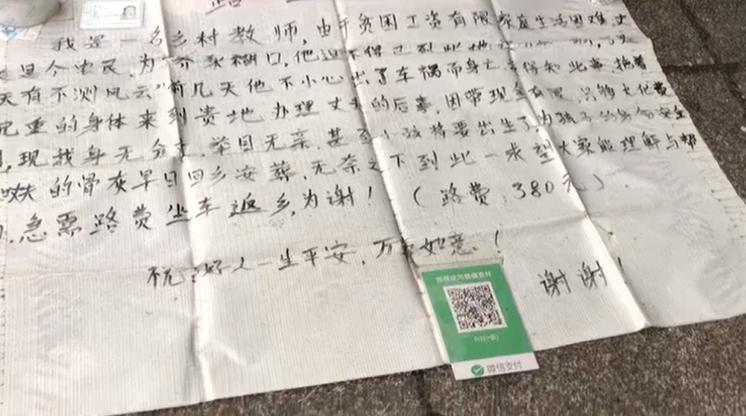 我是一名乡村教师,由于贫困工资有限家庭生活困难丈
是个农民,为了养家糊口,他迫不得已到此地
天有不测风云"前几天他不小心出了车祸而身亡,得知此事拖着
沉重的身体来到贵地办理丈夫的后事,因带现金有限,只够火化费
,现我身无分文,举目无亲,甚至小孩将要出生了,为孩子的身份安全
丈夫的骨灰早日回乡安葬,无奈之下到此一求望大家能理解与帮
急需路费坐车返乡,为谢!(路费:380元)
祝:好人一生平安,万事如意!
谢谢!
推荐使用微信支付
微信支付